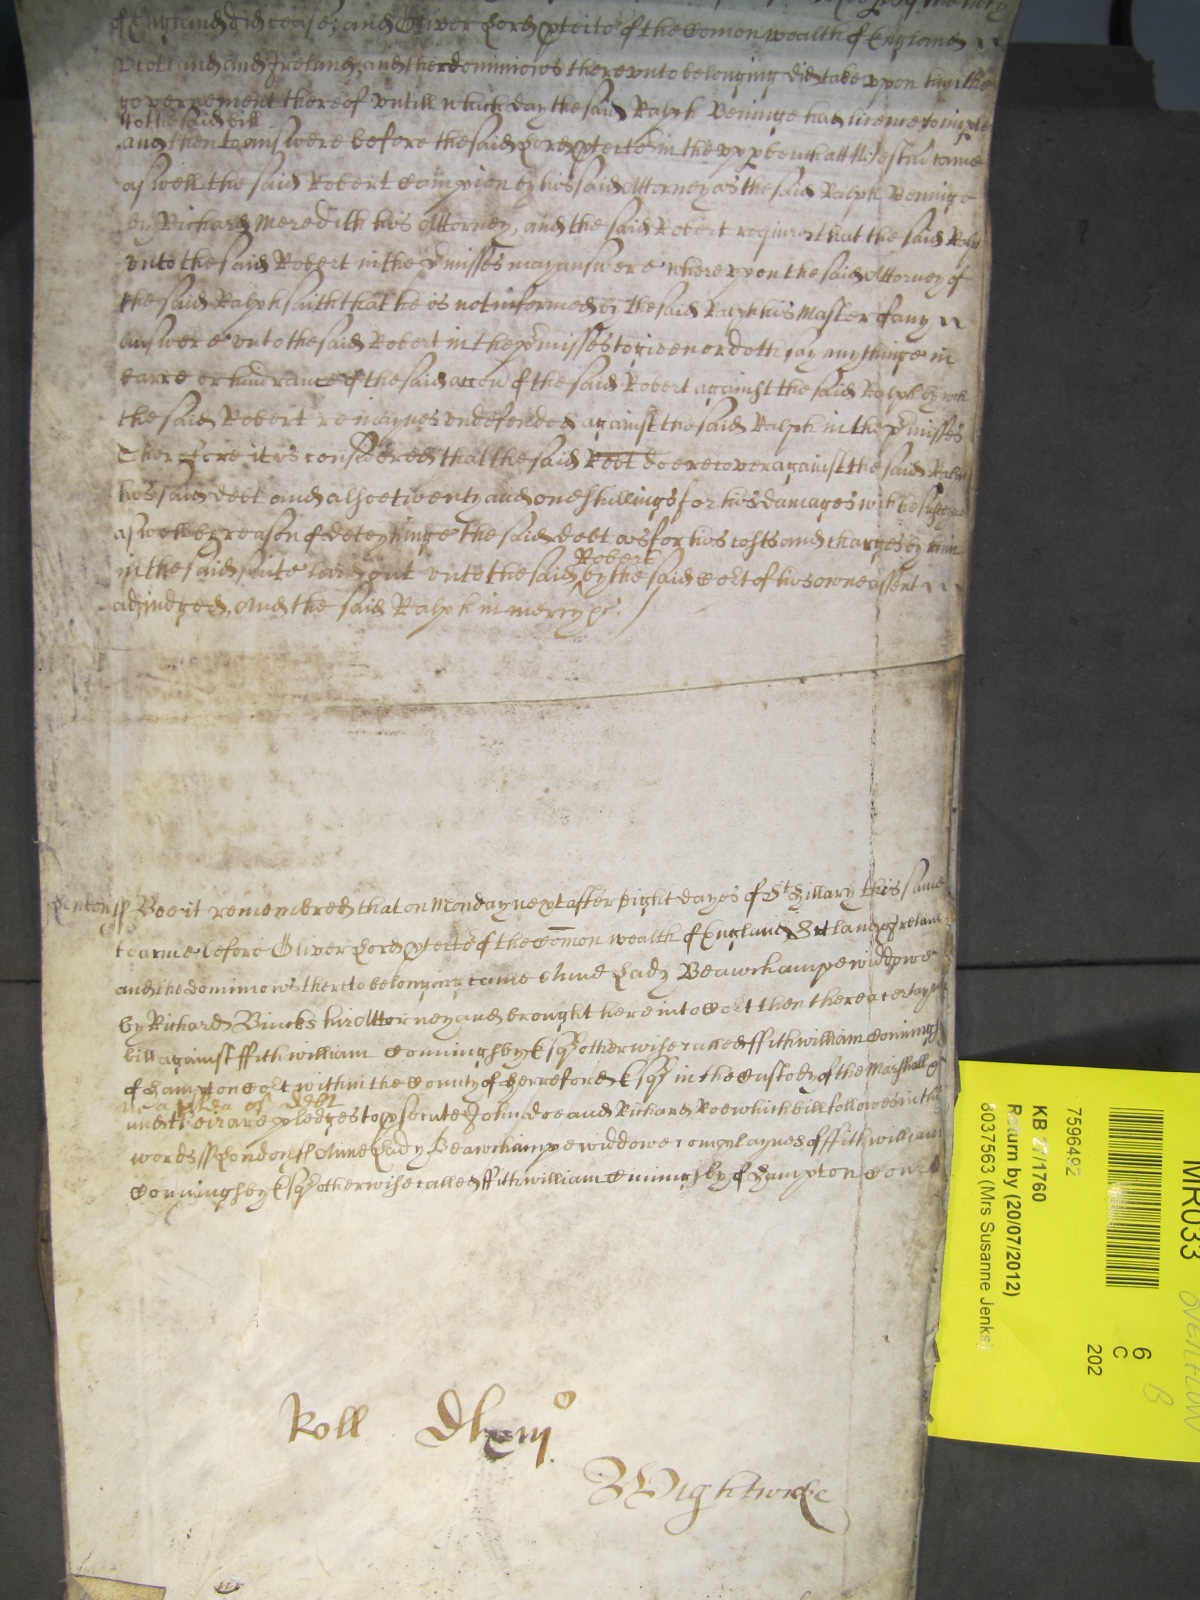 of England did cease, and Oliver Lord Protector of the Comon wealth of England
Scotland and Ireland, and the dominions therevnto belonging did take vpon him the
governement thereof vntill which day the said Ralph Veninge had licence to imple
to the said bill
and then to answere before the said Lord Protector in the vpp bench att Westm came
aswell the said Robert Campion by his said Attorney as the said Ralph Veninge
by Richard Meredith his Attorney, and the said Robert requires that the said Ralph
vnto the said Robert in the pmisses may answere wherevpon the said Attorney of
the said Ralph saith that he is not informed by the said Ralph his Master of any
answere vnto the said Robert in the pmisses to given or doth say any thinge in
barre or hindrance of the said accon of the said Robert against the said Ralph by wch
the said Robert remaynes vndefended against the said Ralph in the pmisses
Therefore it is considered that the said Robt doe recover against the said Ralph
his said debt and alsoe twenty and one shillings for his damages wch he susteyned
aswell by reason of deteyninge the said debt as for his costs and charges by him
Robert
in the said suite laid out vnto the said by the said Cort of his owne assent
adjudged. And the said Ralph in mercy &c.
London ss Bee it remembred that on Monday next after Eight dayes of St Hillary this same
tearme before Oliver Lord Protector of the Comon wealth of England Scotland & Ireland
and the dominions thereto belonging came Anne Lady Beawchampe widdowe
by Richard Bincks her Attorney and brought here into Cort then there a certayne
bill against ffitzwilliam Conningsby Esqr otherwise called ffitzwilliam Conningsby
of Hampton Cort within the County of Herreford Esqr in the Custody of the Marshall &c
in a plea of debt
and their are pledges to psecute John Doe and Richard Roe which bill followes in these
words ss London ss Anne Lady Beawchampe widdowe complaynes of ffitzwilliam
Conningsby Esqr otherwise called ffitzwilliam Conningsby of Hampton Court
Roll Dlxiijo
Wightwicke
MR033
OVERFLOW
6
C
B
202
7596492
KB 27/1760
Return by (20/07/2012)
8037563 (Mrs Susanne Jenks)